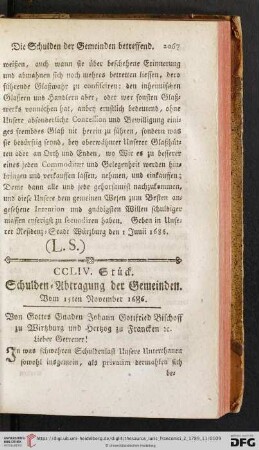 Die Schulden der Gemeinden betreffend. 2067
weihen, auch wann sie über beschehene Erinnerung
und abmahnen sich noch mehres betretten liessen, dero
führende Glaßwahr zu confisciren: den inheimischen
Glässern und Handlern aber, oder wer sonsten Glaß-
wercks vonnöthen hat, anbey ernstlich bedeutend, ohne
Unsere absonderliche Concession und Bewilligung eini-
ges frembdes Glaß nit herein zu führen, sondern was
sie bedürfftig seynd, bey oberwähnter Unserer Glaßhüt-
ten oder an Orth und Enden, wo Wir es zu besserer
eines jeden Commodität und Gelegenheit werden hin-
bringen und verkauffen lassen, nehmen, und einkauffen;
Deme dann alle und jede gehorsamlich nachzukommen,
und dieses Unsere dem gemeinen Wesen zum Besten an-
gesehene Intention und gnädigsten Willen schuldiger
massen eyferigst zu secundiren haben. Geben in Unse-
rer Residenz-Stadt Würzburg den 1 Junii 1686.
(L. S.)
CCLIV. Stück.
Schulden-Abtragung der Gemeinden.
Vom 15ten November 1686.
Von Gottes Gnaden Johann Gottfried Bischoff
zu Wirtzburg und Hertzog zu Francken ꝛc.
Lieber Getreuer!
In was schwehren Schuldenlast Unsere Unterthanen
sowohl insgemein, als privatim dermahlen sich
be-